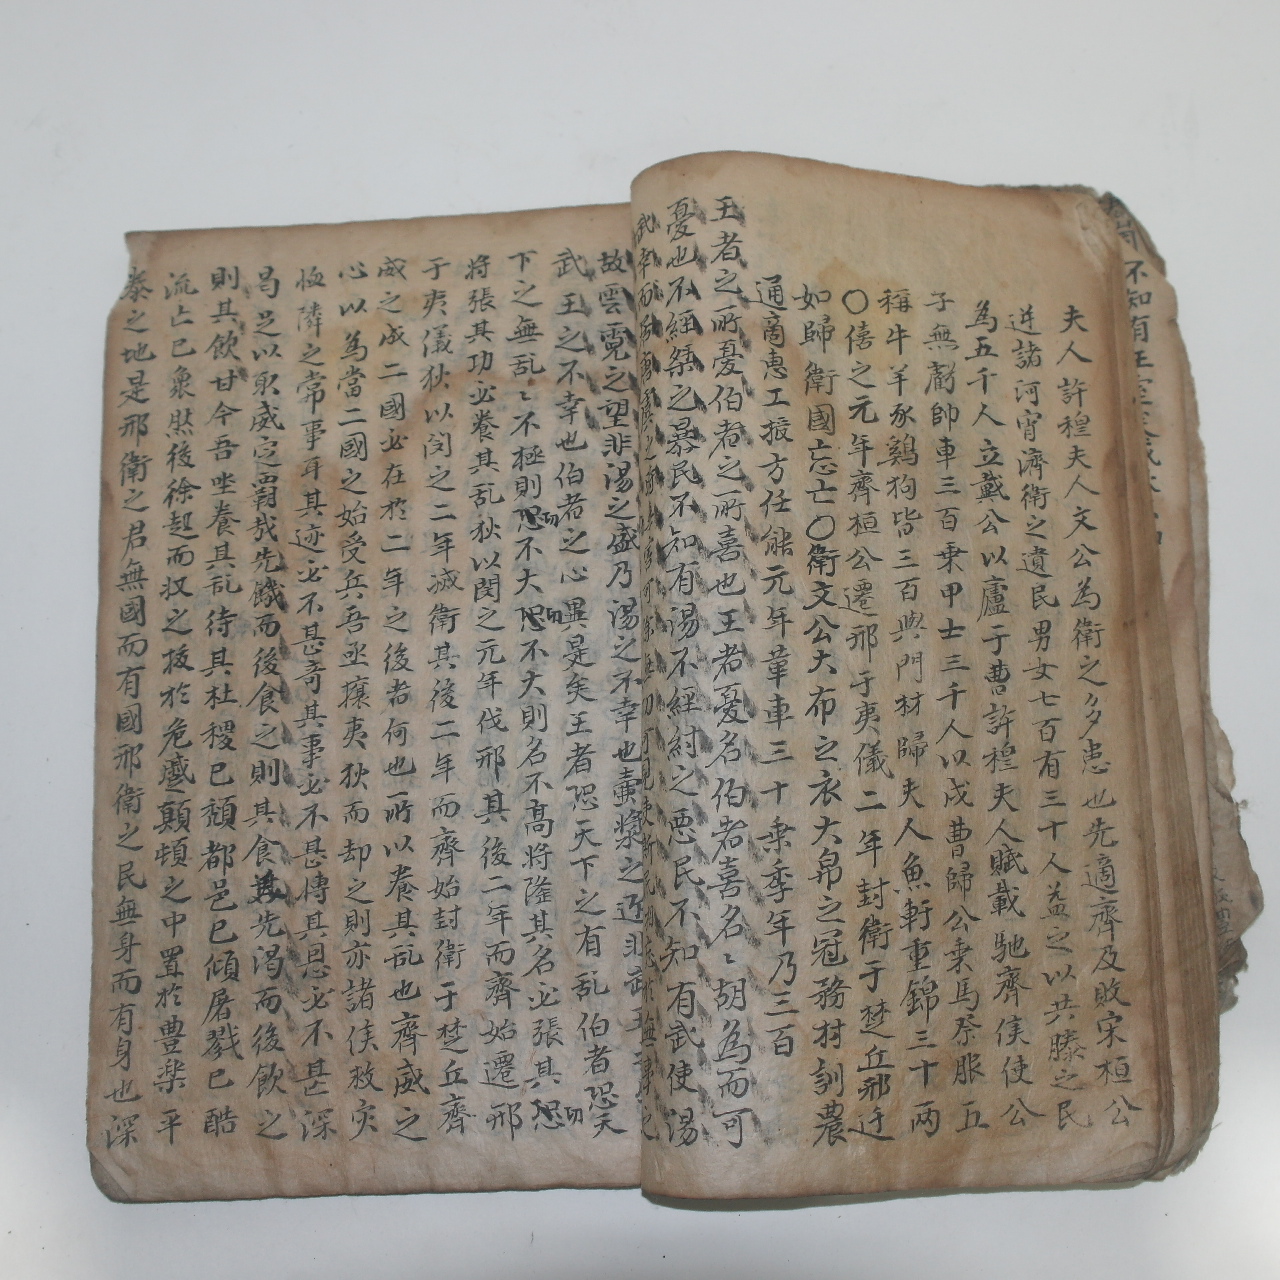 夫人許穆夫人文公為衛之多患也先適齊及敗宋桓公
逆諸河宵濟衛之遺民男女七百有三十人益之以共滕之民
為五千人立戴公以廬于曹許穆夫人賦載馳齊侯使公
子無虧帥車三百乗甲士三千人以戍曹歸公乗馬祭服五
稱牛羊豕鷄狗皆三百與門材歸夫人魚軒重錦三十兩
〇僖之元年齊桓公遷邢于夷儀二年封衛于楚丘邢迁
如歸衛國忘亡〇衛文公大布之衣大帛之冠務材訓農
通商惠工授方任能元年革車三十乗季年乃三百
王者之所憂伯者之所喜也王者憂名伯者喜名〻胡為而可
憂也不經桀之暴民不知有湯不經紂之悪民不知有武使湯
故雲霓之望非湯之盛乃湯之不幸也壷漿之迎非武王
武王之不幸也伯者之心異是矣王者恐天下之有乱伯者恐天
下之無乱〻不極則功不大功不大則名不高將隆其名必張其功
將張其功必養其乱狄以閔之元年伐邢其後二年而齊始遷邢
于夷儀狄以閔之二年滅衛其後二年而齊始封衛于楚丘齊
威之成二國必在於二年之後者何也所以養其乱也齊威之
心以為當二國之始受兵吾亟攘夷狄而却之則亦諸侯救灾
恤隣之常事耳其迹必不甚奇其事必不甚傳其恩必不甚深
曷足以取威定霸哉先餓而後食之則其食美先渴而後飲之
則其飲甘今吾坐養其乱待其社稷已頽都邑已傾屠戮已酷
流亡已衆然後徐起而収之拔於危蹙顛頓之中置於豊楽平
泰之地是邢衛之君無國而有國邢衛之民無身而有身也深
不知有